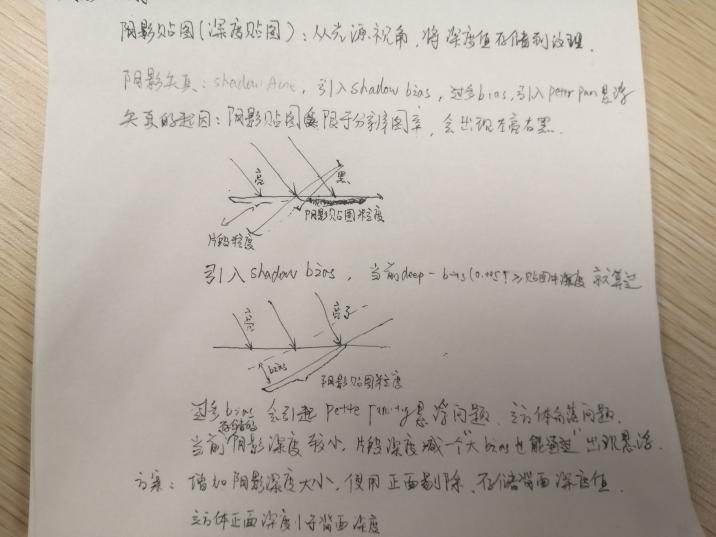 阴影贴图(深度贴图): 从光源视角, 将深度值存储到纹理.
阴影失真: shadow Acne, 引入shadow bias, 过多bias, 引入peter pan悬浮
失真的起因: 阴影贴图 限于分辨率, 会出现左亮右黑.
亮 黑
阴影贴图 粒度
片段粒度
引入 shadow bias, 当前deep - bias(0.005) 贴图中深度 就算
亮
亮了
bias
阴影贴图粒度
过多bias 会引起 Pette Panity悬浮问题. 立方体角落问题.
存储的
当前阴影深度较小, 片段深度减一个"大bias也能通过" 出现悬浮.
方案: 增加阴影深度大小, 使用正面剔除, 存储背面深度值.
立方体正面深度小于背面深度